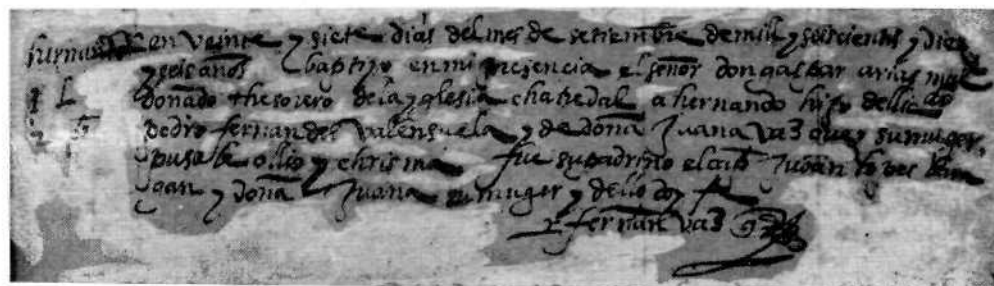 hernando en veinte y siete dias del mes de setiembre de mil y seiscientos y diez
y seis años baptizo en mi presencia el señor don gaspar arias mal
donado thesorero de la yglesia chatredal a hernando hijo del licdo
pedro fernandes valensuela y de doña Juana vasques su muger,
pusole ollio y chrisma fue su padrino el capn Juan lopes
y doña Juana su muger y dello doy fe
fernan vas